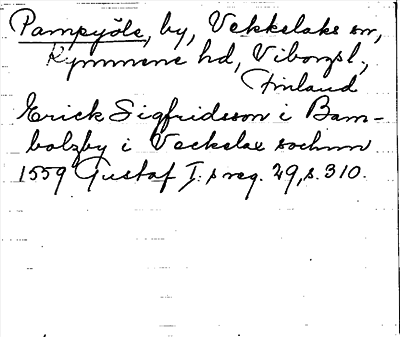 Pampyöle, by, Vekkelaks sn,
Kymmene hd, Viborgsl.,
Finland
Erick Sigfridsson i Bam-
bolzby i Veckelax sochnn
1559 Gustaf I:s reg. 29, s. 310.